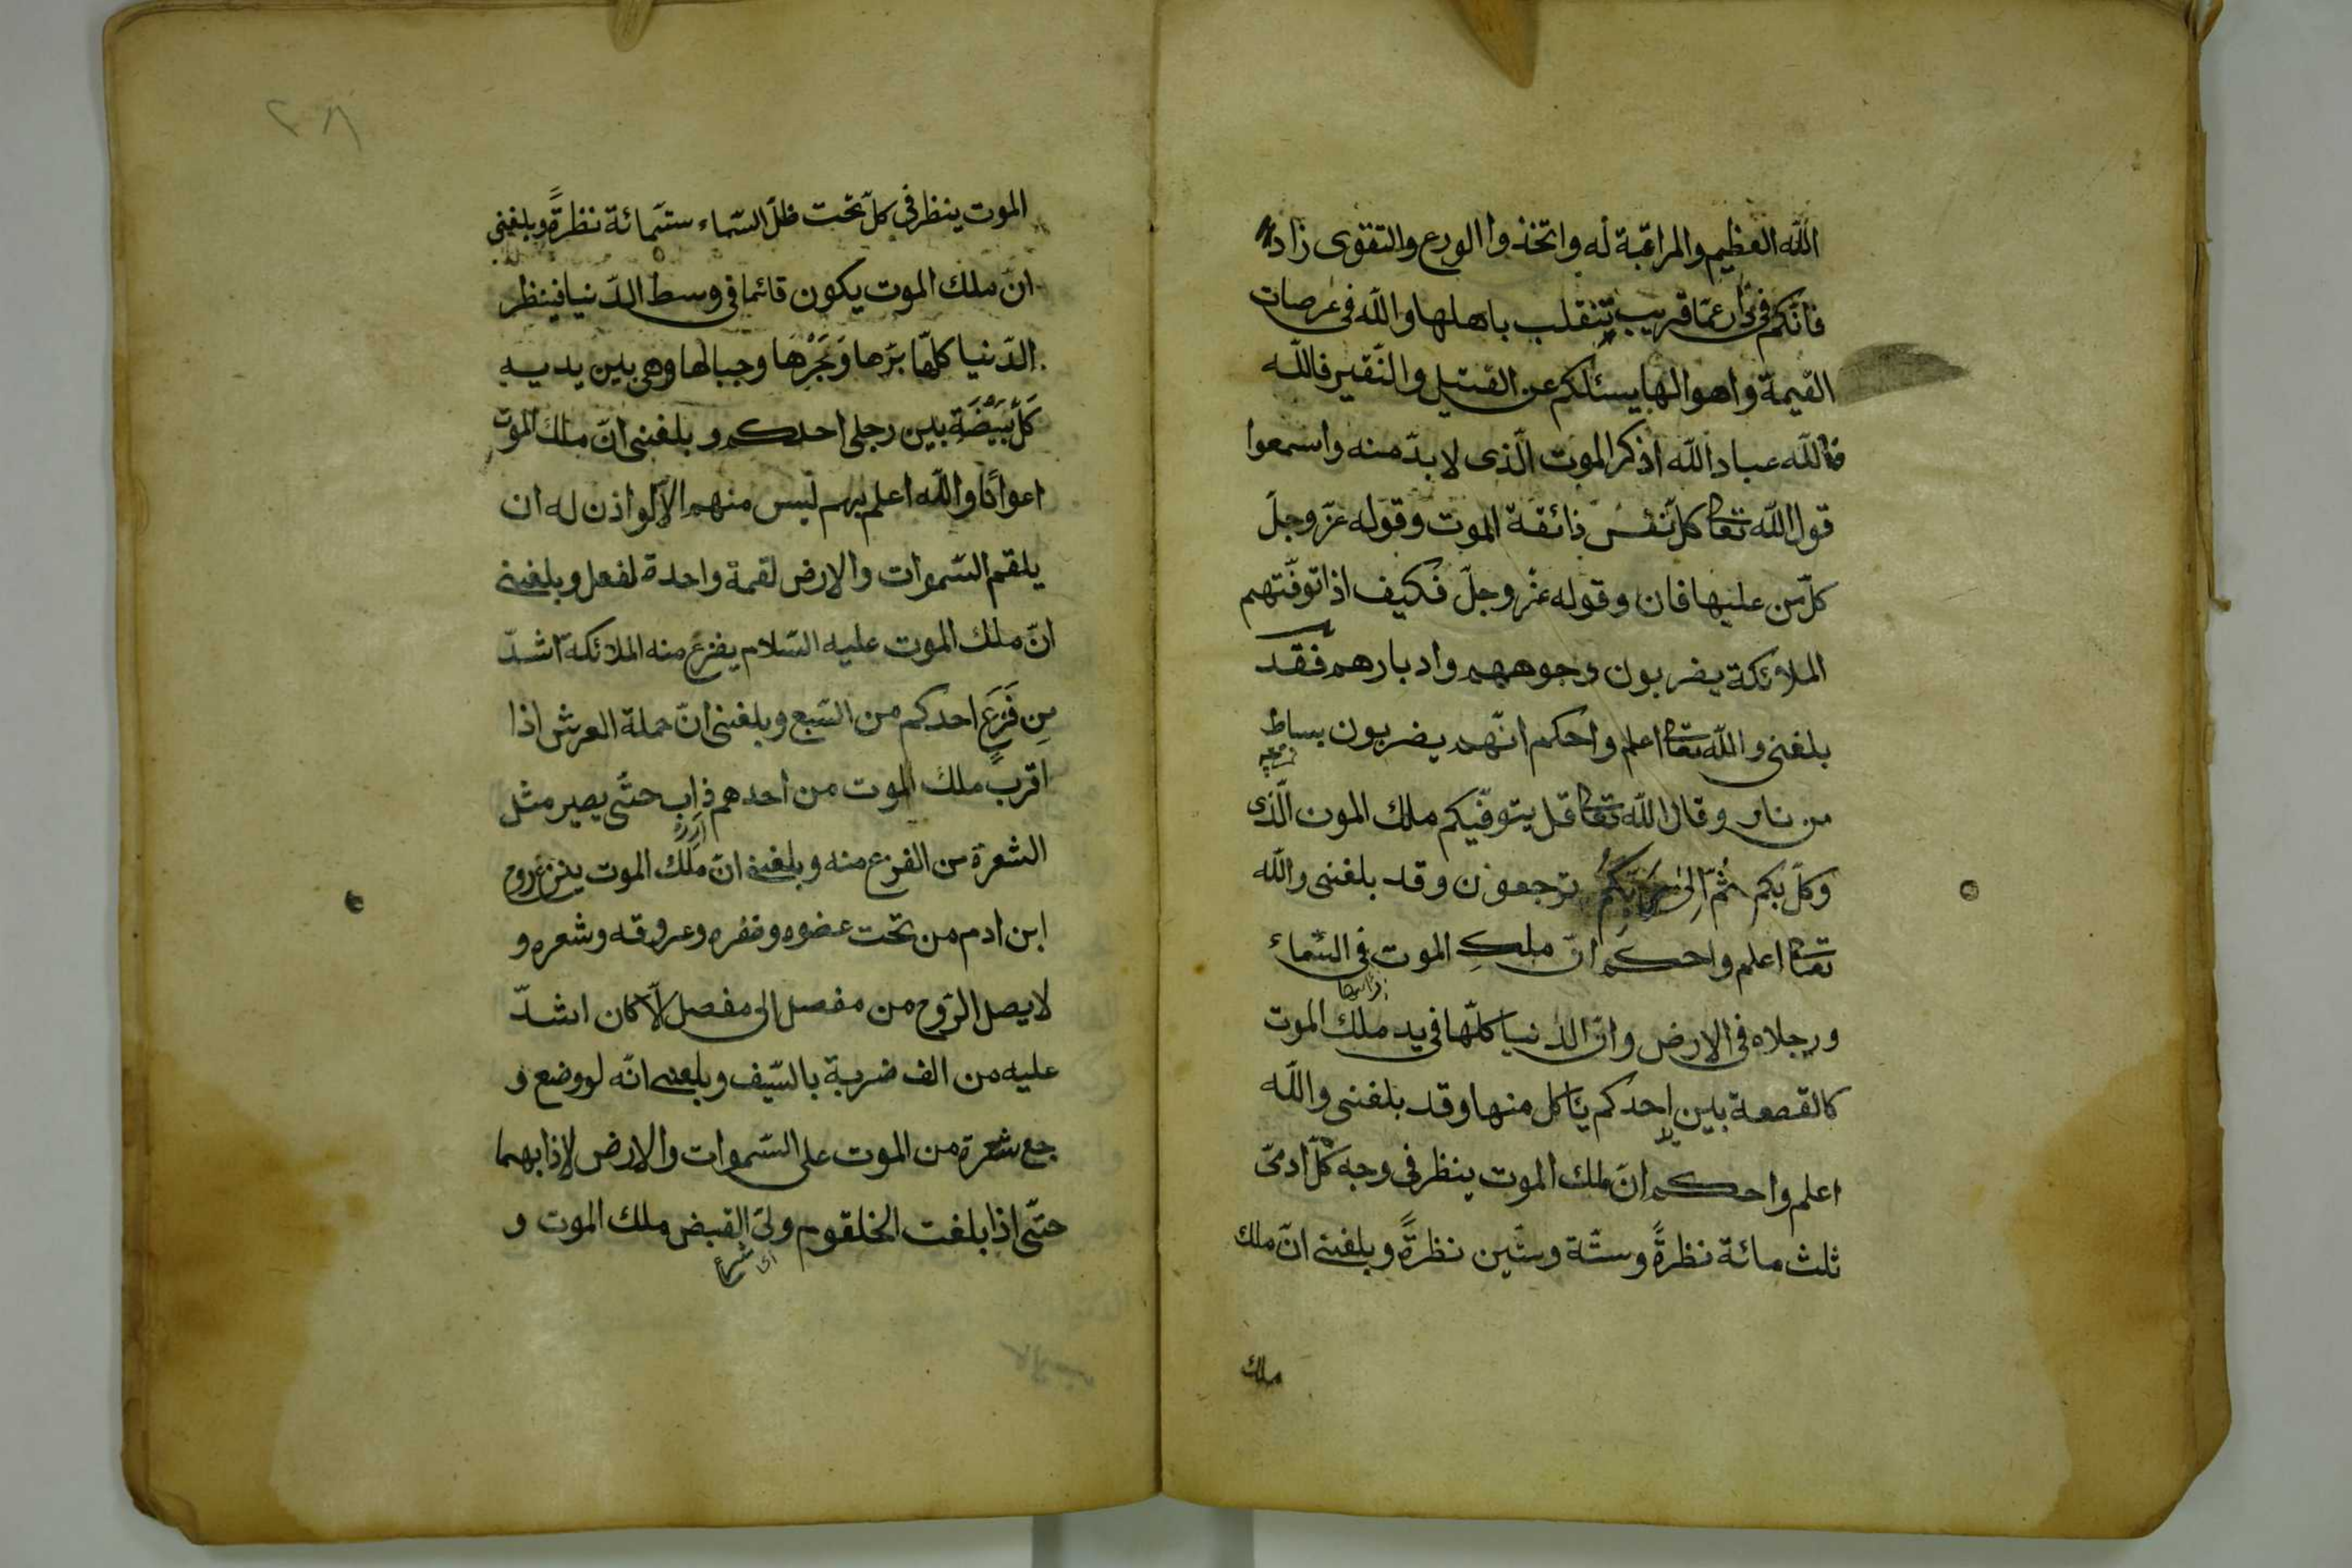 الله العظيم والمراقبة له واتخذوا الورع والتقوى زادا
فانكم فى دار عمّا قريب تنقلب باهلها والله فى عرصات
القيمة واهوالها يسئلكم عن الفتيل والنّقير فاللّه
فاللّه عباد الله اذكر الموت الّذى لا بدّ منه واسمعوا
قول الله تعا كلّ نفس ذائقة الموت وقوله عزّ وجلّ
كلّ من عليها فان وقوله عزّ وجلّ فكيف اذا توفّتهم
الملائكة يضربون وجوههم وادبارهم فقد
بلغنى والله تعا اعلم واحكم انّهم يضربون بسياط
من نار وقال الله تعا قل يتوفّيكم ملك الموت الّذى
وكّل بكم ثُمّ اِلى رَبِّكُم ترجعون وقد بلغنى والله
تعا اعلم واحكم انّ ملك الموت فى السّماء
ورجلاه فى الارض وانّ الدنيا كلّها فى يد ملك الموت
كالقصعة بين احدكم ياكل منها وقد بلغنى والله
اعلم واحكم انّ ملك الموت ينظر فى وجه كلّ ادمىّ
ثلث مائة نظرةً وستّة وستّين نظرةً وبلغنى انّ ملك
ملك
٢٨
الموت ينظر فى كلّ تحت ظلّ السّماء ستّمائة نظرةً وبلغنى
انّ ملك الموت يكون قائما فى وسط الدّنيا فينظر
الدّنيا كلّها برّها وبَحْرُها وجبالها وهى بين يديه
كَبَيْضَة بين رجلى احدكم وبلغنى انّ ملك الموت
اعوانًا والله اعلم بهم ليس منهم الّا لو اذن له ان
يلقم السّموات والارض لقمة واحدة لفعل وبلغنى
انّ ملك الموت عليه السّلام يفزع منه الملائكة اشدّ
مِن فَزَعِ احدكم من السّبع وبلغنى انّ حملة العرش اذا
اقرب ملك الموت من احدهم ذاب حتّى يصير مثل
الشعرة من الفزع منه وبلغنى انّ ملك الموت ينزع روح
ابن ادم من تحت عضوه وظفره وعروقه وشعره و
لا يصل الرّوح من مفصل الى مفصل الّا كان اشدّ
عليه من الف ضربة بالسّيف وبلغنى انّه لو وضع و
جع شعرة من الموت على السّموات والارض لاذابهما
حتّى اذا بلغت الحلقوم ولىّ القبض ملك الموت و